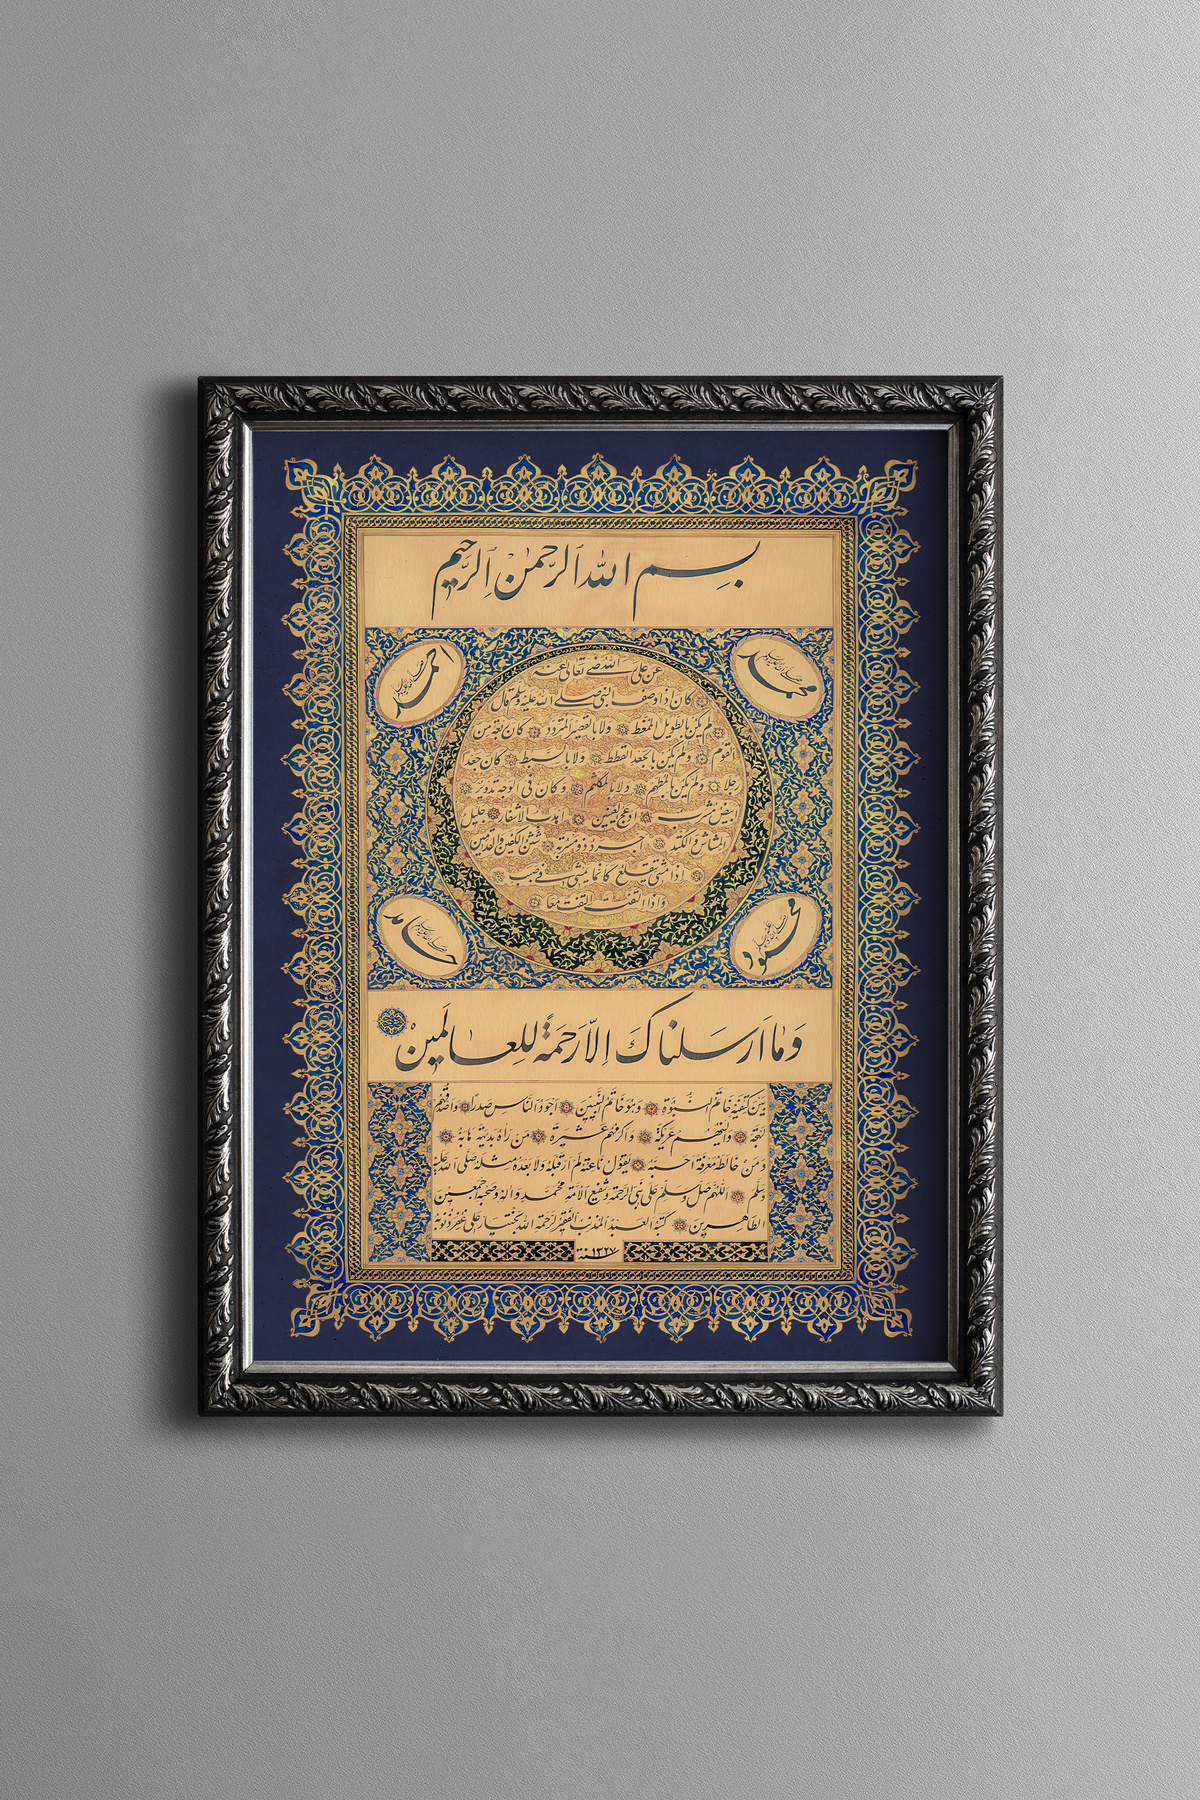 بسم الله الرحمن الرحيم
محمد
احمد
عن على رضى الله تعالى عنه
كان اذا وصف النبى صلى الله عليه وسلم قال
لم يكن بالطويل الممغط ولا بالقصير المتردد كان ربعة من
القوم ولم يكن بالجعد القطط ولا بالسبط كان جعدا
رجلا ولم يكن بالمطهم ولا بالمكلثم وكان فى الوجه تدوير
ابيض مشرب ادعج العينين اهدب الاشفار جليل
المشاش والكتد اجرد ذو مسربة شثن الكفين والقدمين
اذا مشى تقلع كانما يمشى فى صبب
واذا التفت التفت معا
محمود
حامد
وما ارسلناك الا رحمة للعالمين
بين كتفيه خاتم النبوة وهو خاتم النبيين اجود الناس صدرا واصدقهم
لهجة والينهم عريكة واكرمهم عشيرة من راه بديهة هابه
ومن خالطه معرفة احبه يقول ناعته لم ار قبله ولا بعده مثله صلى الله عليه
وسلم اللهم صل وسلم على نبى الرحمة وشفيع الامة محمد واله وصحبه اجمعين
الطاهرين كتبه العبد المذنب الفقير لرحمة الله بختيار على غفر ذنوبه
سنة ١٣٢٧